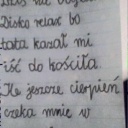 Disko relax bo
tata kazał mi
iść do kościła
Ile jeszcze cierpień
czeka mnie w